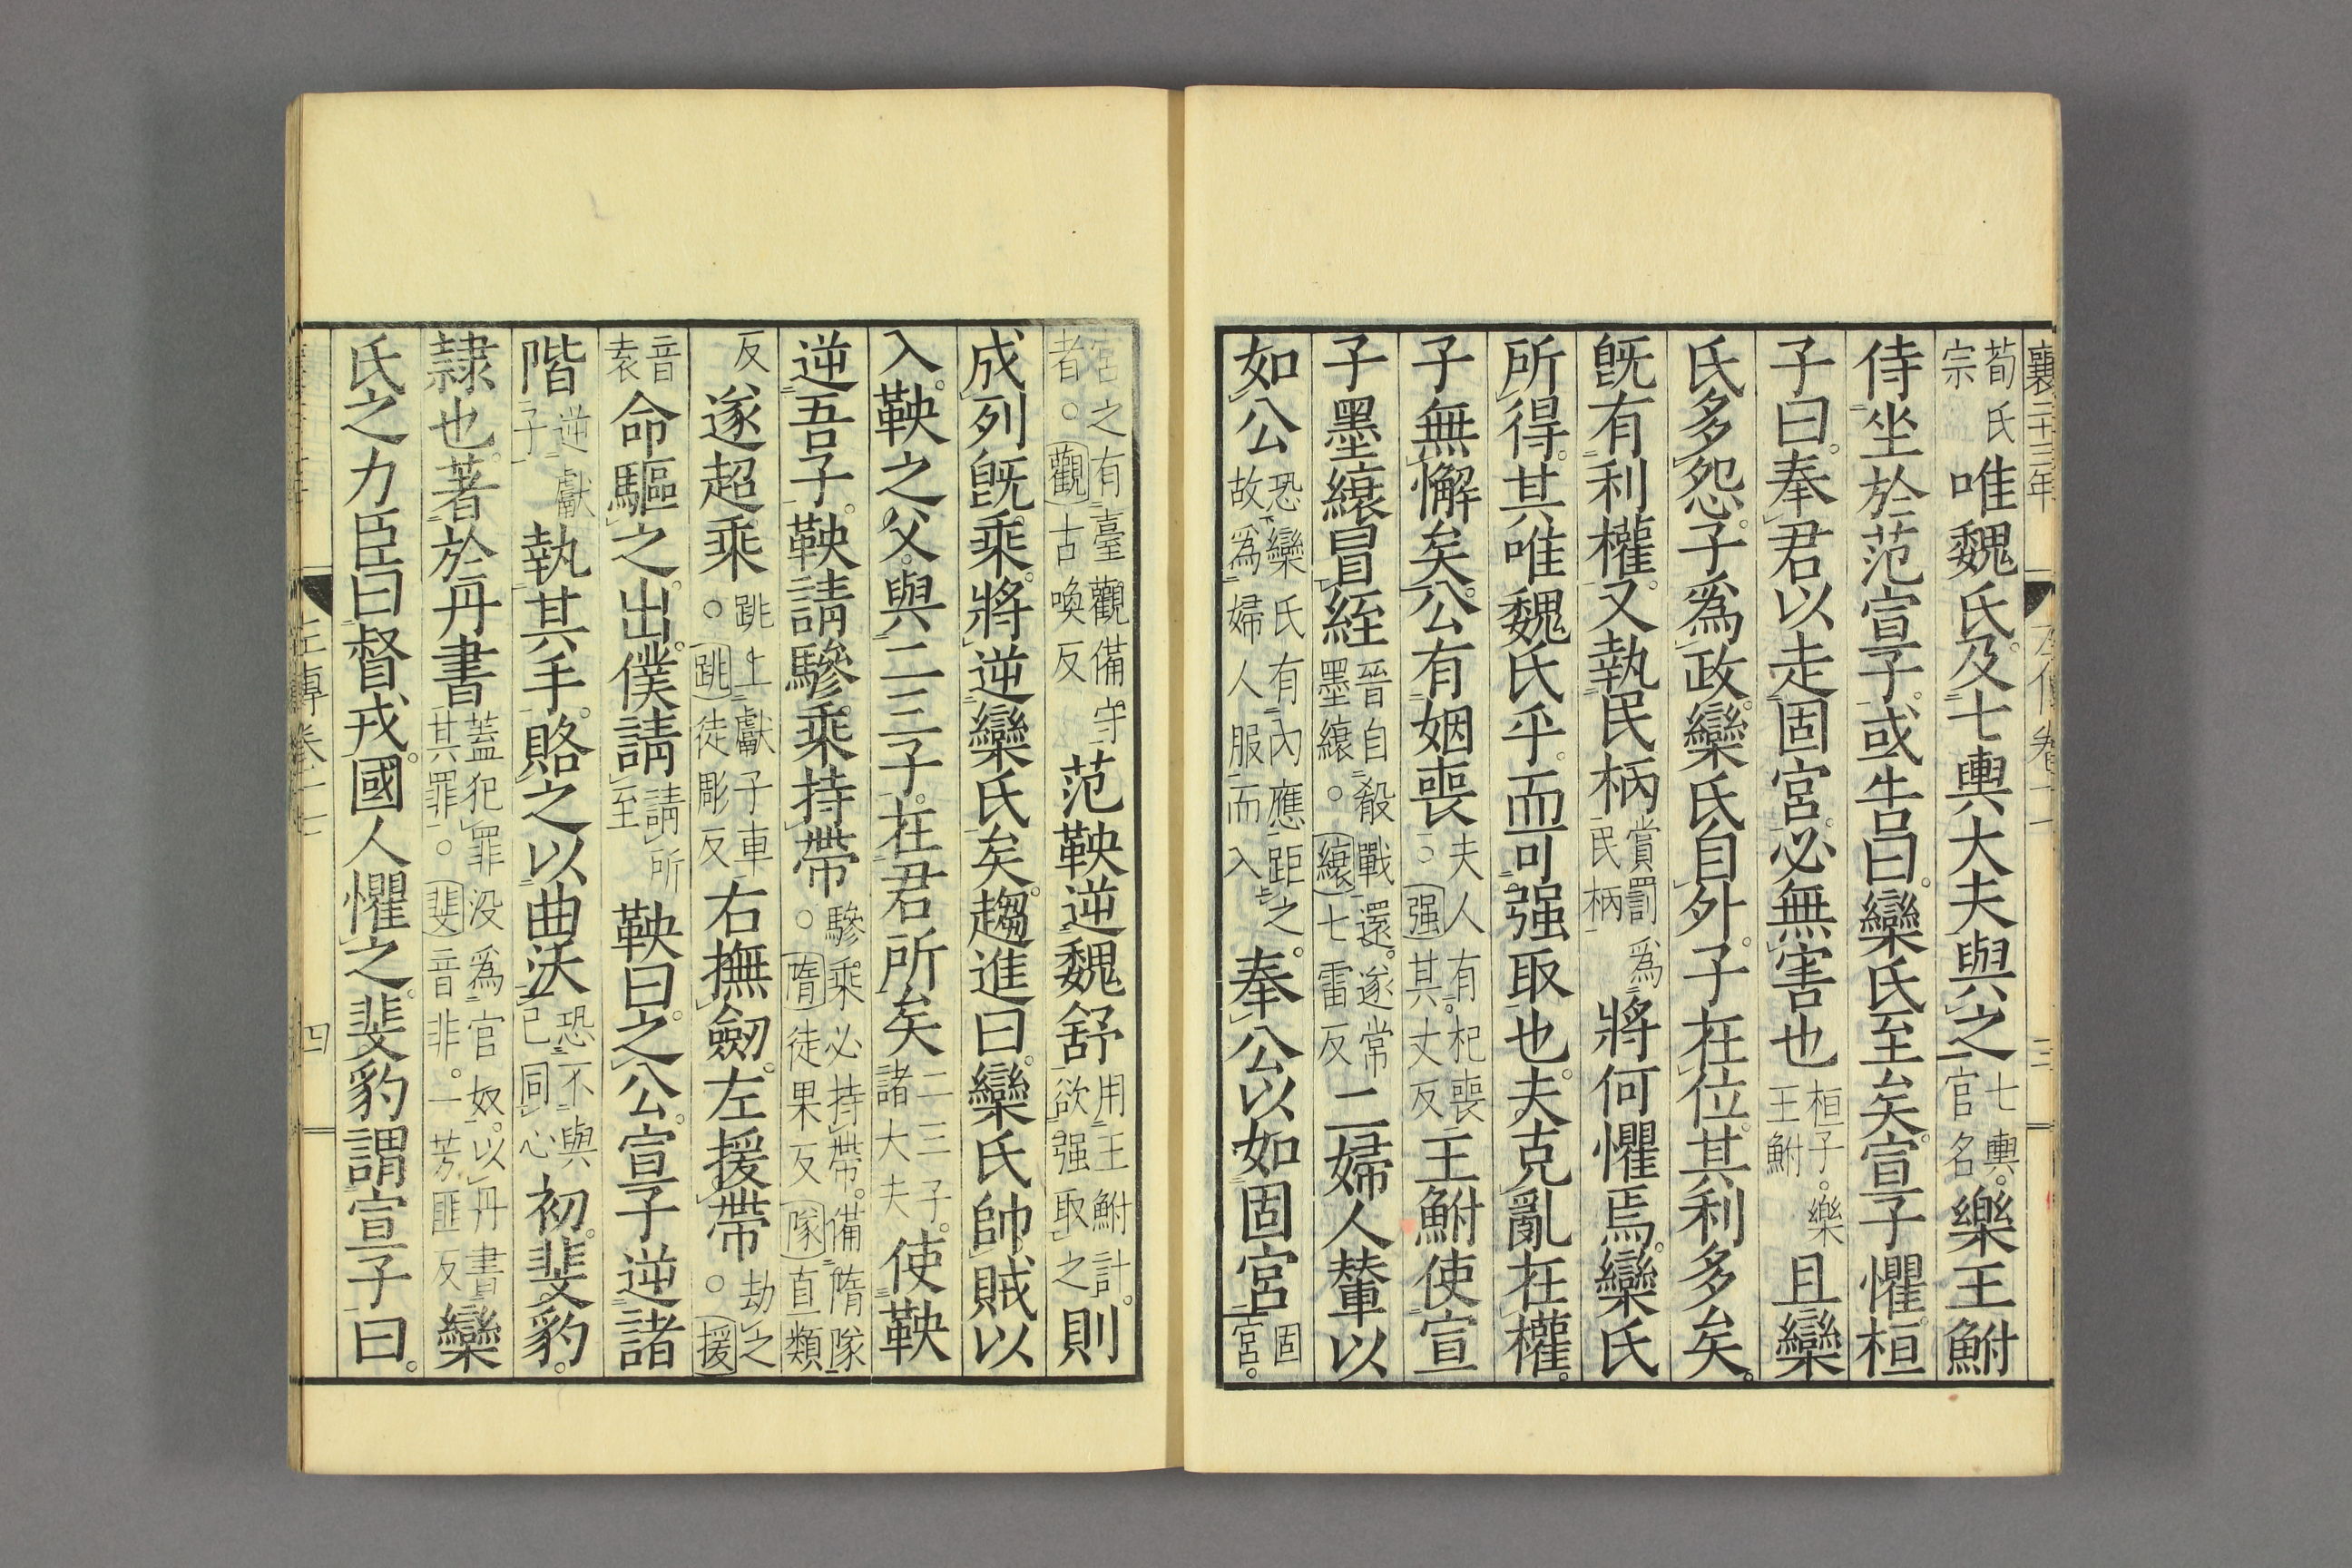 襄二十三年
三
荀氏宗唯魏氏及七輿大夫與之七輿官名樂王鮒
侍坐於范宣子或告曰欒氏至矣宣子懼桓
子曰奉君以走固宮必無害也桓子樂王鮒且欒
氏多怨子爲政欒氏自外子在位其利多矣
既有利權又執民柄賞罰爲民柄將何懼焉欒氏
所得其唯魏氏乎而可强取也夫克亂在權
子無懈矣公有姻喪夫人有杞喪○强其丈反王鮒使宣
子墨縗冒絰晉自殽戰還遂常墨縗○縗七雷反二婦人輦以
如公恐欒氏有內應距之故爲婦人服而入奉公以如固宮固宮
宮之有臺觀備守者○觀古喚反范鞅逆魏舒用王鮒計欲强取之則
成列既乘將逆欒氏矣趨進曰欒氏帥賊以
入鞅之父與二三子在君所矣二三子諸大夫使鞅
逆吾子鞅請驂乘持帶驂乘必持帶備隋隊○隋徒果反隊直類
反遂超乘跳上獻子車○跳徒彫反右撫劒左援帶劫之○援
音袁命驅之出僕請請所至鞅曰之公宣子逆諸
階逆獻子執其手賂之以曲沃恐不與己同心初斐豹
隷也著於丹書蓋犯罪没爲官奴以丹書其罪○斐音非一芳匪反欒
氏之力臣曰督戎國人懼之斐豹謂宣子曰
左傳卷十七
四